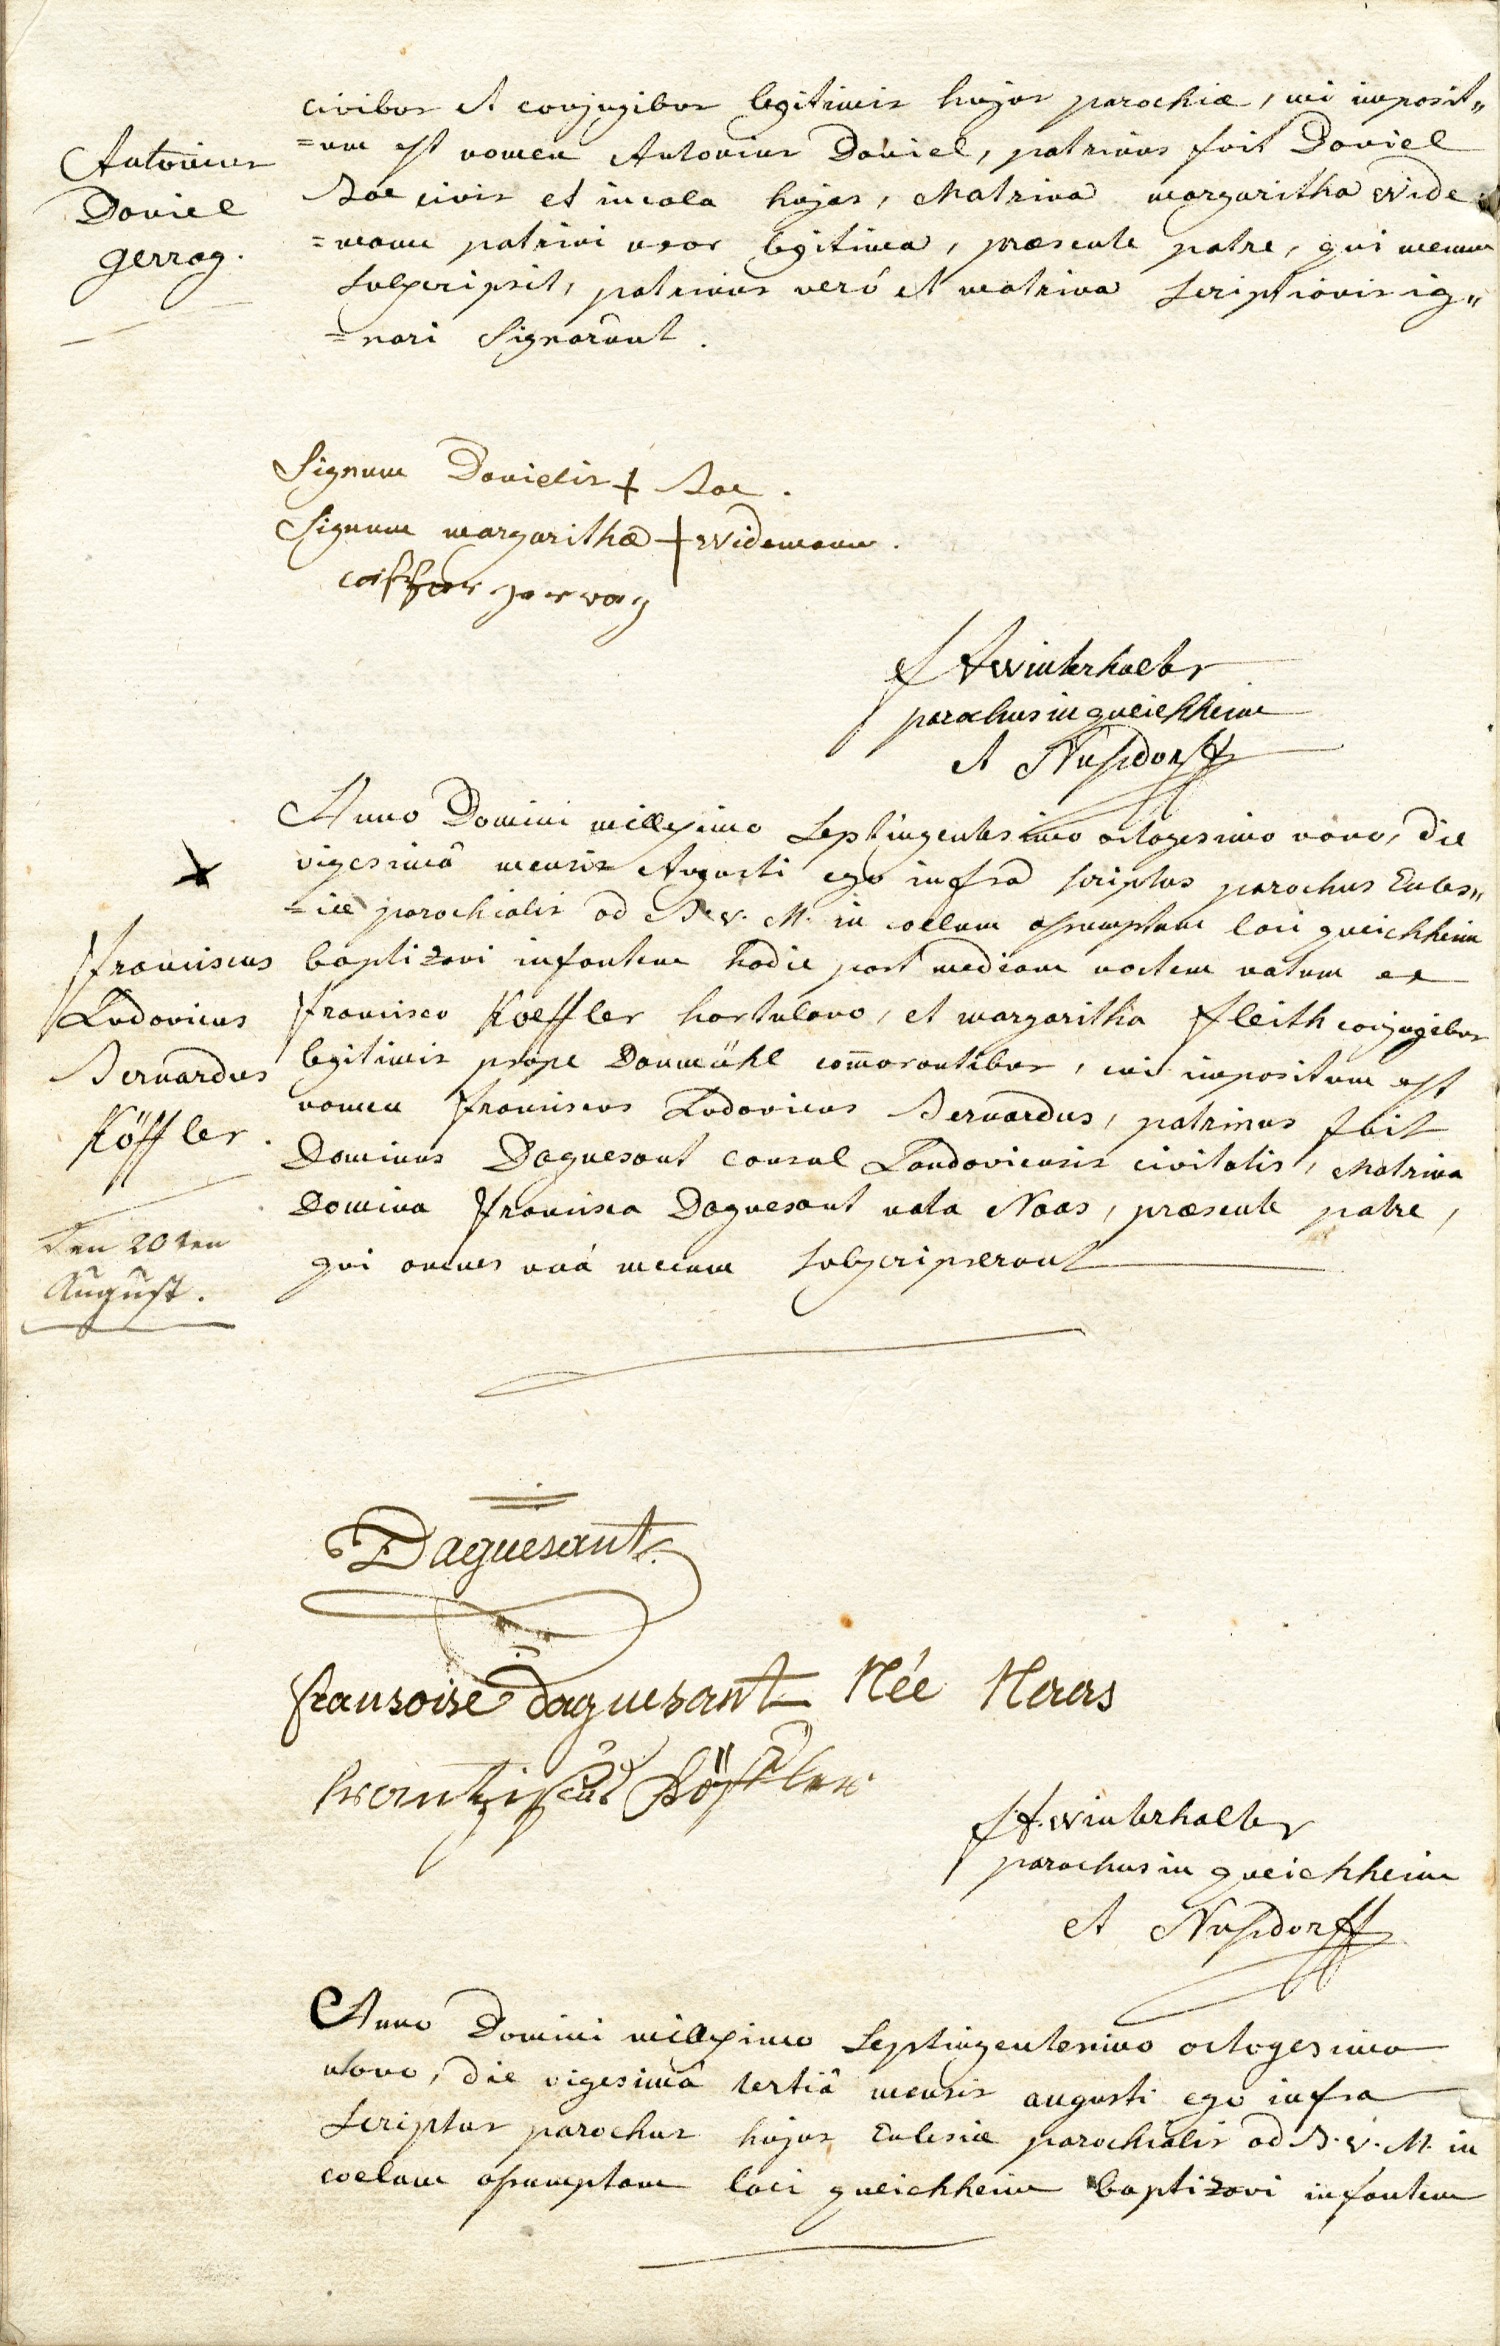 civibus et conjugibus legitimis hujus parochiæ, cui imposit„
=um est nomen Antonius Daniel, patrinus fuit Daniel
Antonius
Daniel
gerrag.
civis et incola hujas, Matrina margaritha Wide
=mann patrini uxor legitima, præsente patre, qui mecum
subscripsit, patrinus verò et matrina scriptionis ig„
=nari signarunt.
Signum Danielis +
Signum margarithæ + Widemann.
F A Winterhalter
parochus in queichheim
et Nusdorff
Anno Domini millesimo septingentesimo octogesimo nono, die
vigesimâ mensis Augusti ego infra scriptus parochus Eccles„
=iæ parochialis ad B. V. M. in coelum assumptam loci queichheim
Franciscus
Ludovicus
Bernardus
Köffler.
den 20ten
August.
baptizavi infantem hodie post mediam noctem natum ex
Francisco Koeffler hortulano, et margaritha fleith conjugibus
legitimis prope Danmühl com̄orantibus, cui impositum est
nomen Franciscus Ludovicus Bernardus, patrinus fuit
Dominus Daguesant consul Landoviensis civitatis, Matrina
Domina Francisca Daguesant nata Naas, præsente patre,
qui omnes unà mecum subscripserunt
Daguesant
fransoise daguesant Née Naas
frantziscus Köffler
F A. Winterhalter
parochus in queichheim
et Nusdorff
Anno Domini millesimo septingentesimo octogesimo
nono, die vigesimâ tertiâ mensis augusti ego infra
scriptus parochus hujus Eclesiæ parochialis ad B. V. M. in
coelum assumptam loci queichheim baptizavi infantem